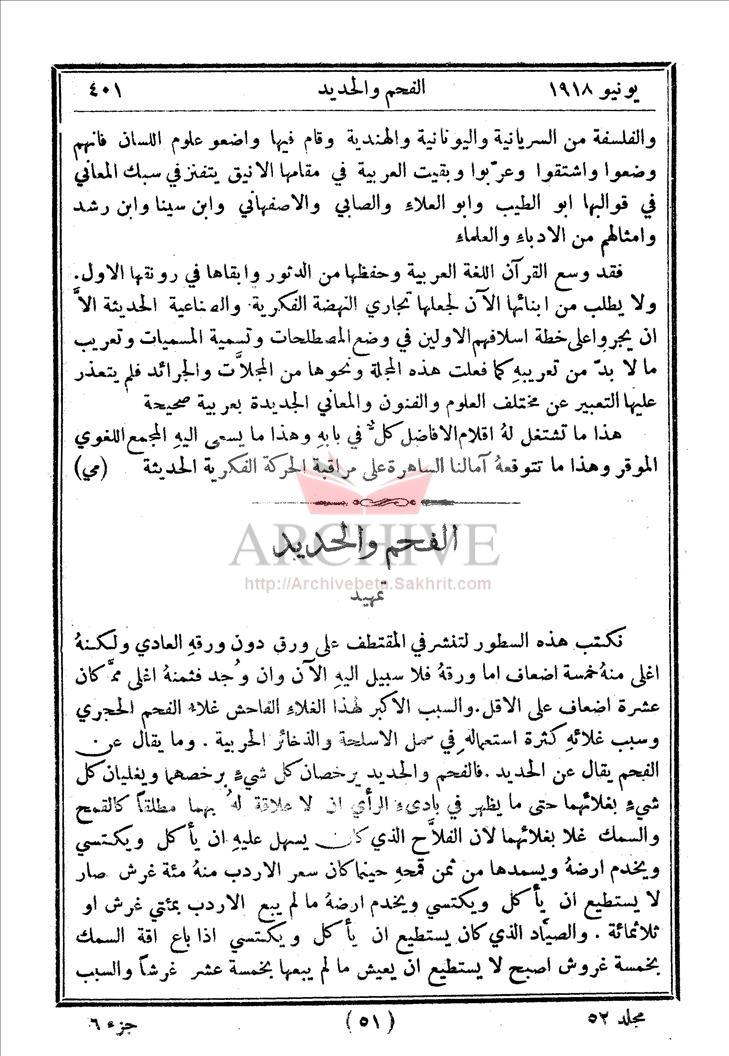 يونيو ١٩١٨
الفحم والحديد
٤٠١
والفلسفة من السريانية واليونانية والهندية وقام فيها واضعو علوم اللسان فانهم
وضعوا واشتقوا وعرّبوا وبقيت العربية في مقامها الانيق يتفنز في سبك المعاني
في قوالبها ابو الطيب وابو العلاء والصابي والاصفهاني وابن سينا وابن رشد
وامثالهم من الادباء والعلماء
فقد وسع القرآن اللغة العربية وحفظها من الدثور وابقاها في رونقها الاول.
ولا يطلب من ابنائها الآن لجعلها تجاري النهضة الفكرية والصناعية الحديثة الاَّ
ان يجروا على خطة اسلافهم الاولين في وضع المصطلحات وتسمية المسميات وتعريب
ما لا بدّ من تعريبهِ كما فعلت هذه المجلة ونحوها من المجلاَّت والجرائد فلم يتعذر
عليها التعبير عن مختلف العلوم والفنون والمعاني الجديدة بعربية صحيحة
هذا ما تشتغل لهُ اقلام الافاضل كلٌّ في بابهِ وهذا ما يسعى اليهِ المجمع اللغوي
الموقر وهذا ما تتوقعهُ آمالنا الساهرة على مراقبة الحركة الفكرية الحديثة (مي)
ARCHIVE
http://Archivebeta.Sakhrit.com
الفحم والحديد
تمهيد
نكتب هذه السطور لتنشر في المقتطف على ورق دون ورقهِ العادي ولكنهُ
اغلى منهُ خمسة اضعاف اما ورقهُ فلا سبيل اليهِ الآن وان وُجد فثمنهُ اغلى ممَّا كان
عشرة اضعاف على الاقل. والسبب الاكبر لهذا الغلاء الفاحش غلاء الفحم الحجري
وسبب غلائهِ كثرة استعمالهِ في عمل الاسلحة والذخائر الحربية. وما يقال عن
الفحم يقال عن الحديد. فالفحم والحديد يرخصان كل شيءٍ برخصهما ويغليان كل
شيءٍ بغلائهما حتى ما يظهر في بادىء الرأي ان لا علاقة لهُ بهما مطلقاً كالقمح
والسمك غلا بغلائهما لان الفلاَّح الذي كان يسهل عليهِ ان يأكل ويكتسي
ويخدم ارضهُ ويسمدها من ثمن قمحهِ حينما كان سعر الاردب منهُ مئة غرش صار
لا يستطيع ان يأكل ويكتسي ويخدم ارضهُ ما لم يبع الاردب بمئتي غرش او
ثلاثمائة. والصيَّاد الذي كان يستطيع ان يأكل ويكتسي اذا باع اقة السمك
بخمسة غروش اصبح لا يستطيع ان يعيش ما لم يبعها بخمسة عشر غرشاً والسبب
مجلد ٥٢
(٥١)
جزء ٦